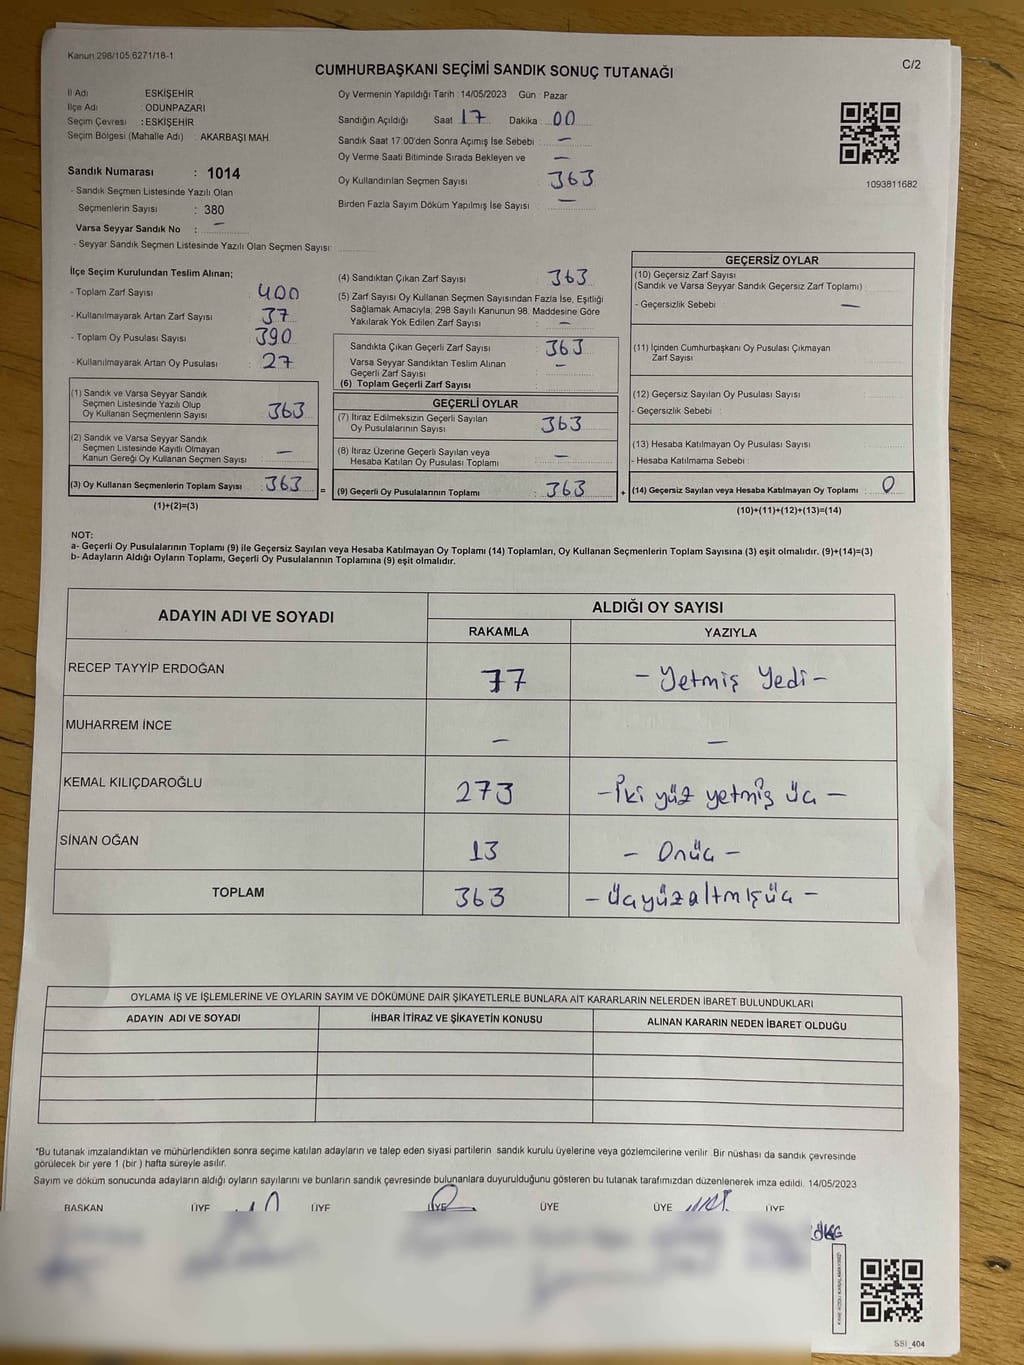 Kanun:298/105,6271/18-1
C/2
CUMHURBAŞKANI SEÇİMİ SANDIK SONUÇ TUTANAĞI
İl Adı ESKİŞEHİR
İlçe Adı ODUNPAZARI
Seçim Çevresi : ESKİŞEHİR
Seçim Bölgesi (Mahalle Adı) : AKARBAŞI MAH.
Sandık Numarası : 1014
- Sandık Seçmen Listesinde Yazılı Olan
Seçmenlerin Sayısı : 380
Varsa Seyyar Sandık No : –
- Seyyar Sandık Seçmen Listesinde Yazılı Olan Seçmen Sayısı:
Oy Vermenin Yapıldığı Tarih : 14/05/2023 Gün : Pazar
Sandığın Açıldığı Saat 17 Dakika : 00
Sandık Saat 17:00'den Sonra Açımış İse Sebebi : –
Oy Verme Saati Bitiminde Sırada Bekleyen ve –
Oy Kullandırılan Seçmen Sayısı : 363
Birden Fazla Sayım Döküm Yapılmış İse Sayısı : –
1093811682
İlçe Seçim Kurulundan Teslim Alınan;
- Toplam Zarf Sayısı : 400
- Kullanılmayarak Artan Zarf Sayısı : 37
- Toplam Oy Pusulası Sayısı : 390
- Kullanılmayarak Artan Oy Pusulası : 27
(1) Sandık ve Varsa Seyyar Sandık
Seçmen Listesinde Yazılı Olup
Oy Kullanan Seçmenlerin Sayısı : 363
(2) Sandık ve Varsa Seyyar Sandık
Seçmen Listesinde Kayıtlı Olmayan
Kanun Gereği Oy Kullanan Seçmen Sayısı : –
(3) Oy Kullanan Seçmenlerin Toplam Sayısı : 363
(1)+(2)=(3)
(4) Sandıktan Çıkan Zarf Sayısı : 363
(5) Zarf Sayısı Oy Kullanan Seçmen Sayısından Fazla İse, Eşitliği
Sağlamak Amacıyla, 298 Sayılı Kanunun 98. Maddesine Göre
Yakılarak Yok Edilen Zarf Sayısı : –
Sandıkta Çıkan Geçerli Zarf Sayısı : 363
Varsa Seyyar Sandıktan Teslim Alınan –
Geçerli Zarf Sayısı :
(6) Toplam Geçerli Zarf Sayısı :
GEÇERLİ OYLAR
(7) İtiraz Edilmeksizin Geçerli Sayılan
Oy Pusulalarının Sayısı : 363
(8) İtiraz Üzerine Geçerli Sayılan veya
Hesaba Katılan Oy Pusulası Toplamı : –
= (9) Geçerli Oy Pusulalarının Toplamı : 363
GEÇERSİZ OYLAR
(10) Geçersiz Zarf Sayısı
(Sandık ve Varsa Seyyar Sandık Geçersiz Zarf Toplamı)
- Geçersizlik Sebebi : –
(11) İçinden Cumhurbaşkanı Oy Pusulası Çıkmayan
Zarf Sayısı
(12) Geçersiz Sayılan Oy Pusulası Sayısı
- Geçersizlik Sebebi :
(13) Hesaba Katılmayan Oy Pusulası Sayısı
- Hesaba Katılmama Sebebi :
+ (14) Geçersiz Sayılan veya Hesaba Katılmayan Oy Toplamı : 0
(10)+(11)+(12)+(13)=(14)
NOT:
a- Geçerli Oy Pusulalarının Toplamı (9) ile Geçersiz Sayılan veya Hesaba Katılmayan Oy Toplamı (14) Toplamları, Oy Kullanan Seçmenlerin Toplam Sayısına (3) eşit olmalıdır. (9)+(14)=(3)
b- Adayların Aldığı Oyların Toplamı, Geçerli Oy Pusulalarının Toplamına (9) eşit olmalıdır.
ADAYIN ADI VE SOYADI ALDIĞI OY SAYISI
RAKAMLA YAZIYLA
RECEP TAYYİP ERDOĞAN 77 – Yetmiş Yedi –
MUHARREM İNCE – –
KEMAL KILIÇDAROĞLU 273 – İki yüz yetmiş üç –
SİNAN OĞAN 13 – Onüç –
TOPLAM 363 – Üçyüzaltmışüç –
OYLAMA İŞ VE İŞLEMLERİNE VE OYLARIN SAYIM VE DÖKÜMÜNE DAİR ŞİKAYETLERLE BUNLARA AİT KARARLARIN NELERDEN İBARET BULUNDUKLARI
ADAYIN ADI VE SOYADI İHBAR İTİRAZ VE ŞİKAYETİN KONUSU ALINAN KARARIN NEDEN İBARET OLDUĞU
*Bu tutanak imzalandıktan ve mühürlendikten sonra seçime katılan adayların ve talep eden siyasi partilerin sandık kurulu üyelerine veya gözlemcilerine verilir. Bir nüshası da sandık çevresinde
görülecek bir yere 1 (bir ) hafta süreyle asılır.
Sayım ve döküm sonucunda adayların aldığı oyların sayılarını ve bunların sandık çevresinde bulunanlara duyurulduğunu gösteren bu tutanak tarafımızdan düzenlenerek imza edildi. 14/05/2023
BAŞKAN ÜYE ÜYE ÜYE ÜYE ÜYE ÜYE
SSİ_404